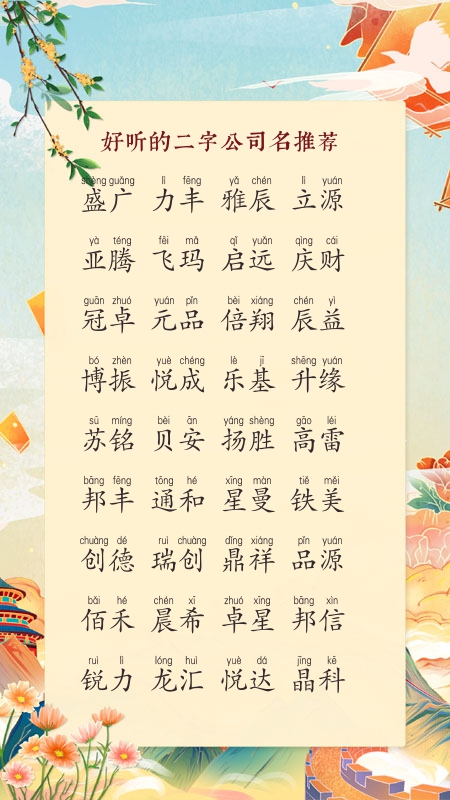 好听的二字公司名推荐
shèng guǎng lì fēng yǎ chén lì yuán
盛广 力丰 雅辰 立源
yà téng fēi mǎ qǐ yuǎn qìng cái
亚腾 飞玛 启远 庆财
guān zhuó yuán pǐn bèi xiáng chén yì
冠卓 元品 倍翔 辰益
bó zhèn yuè chéng lè jī shēng yuán
博振 悦成 乐基 升缘
sū míng bèi ān yáng shèng gāo léi
苏铭 贝安 扬胜 高雷
bāng fēng tōng hé xīng màn tiě měi
邦丰 通和 星曼 铁美
chuàng dé ruì chuàng dǐng xiáng pǐn yuán
创德 瑞创 鼎祥 品源
bǎi hé chén xī zhuó xīng bāng xìn
佰禾 晨希 卓星 邦信
ruì lì lóng huì yuè dá jīng kē
锐力 龙汇 悦达 晶科